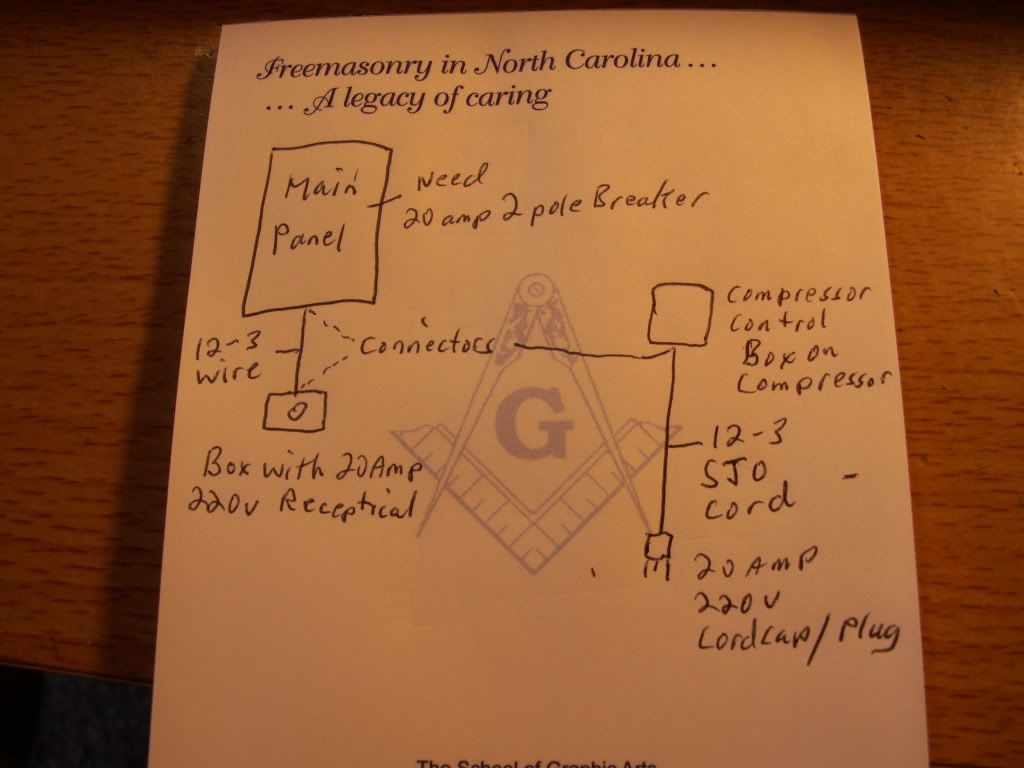 Freemasonry in North Carolina ...
... A legacy of caring
Main
Panel
Need
20 amp 2 pole Breaker
12-3
wire
Connectors
Compressor
Control
Box on
Compressor
G
Box with 20 Amp
220v Receptical
12-3
SJO
Cord
20 Amp
220v
Cordcap/Plug
The School of Graphic Arts